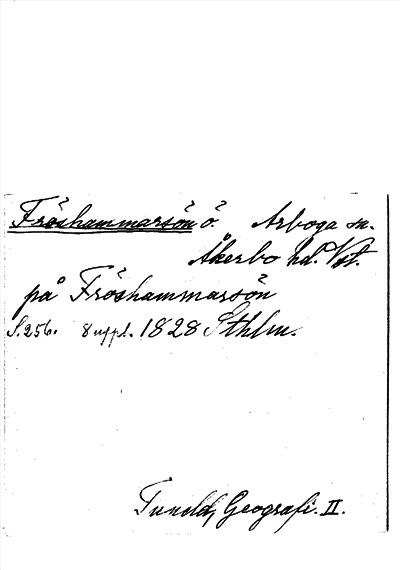 Fröshammarsön ö. Arboga sn.
Åkerbo hd. Vstm.
på Fröshammarsön
S. 256. 8 uppl. 1828 Sthlm.
Tuneld, Geografi. II.